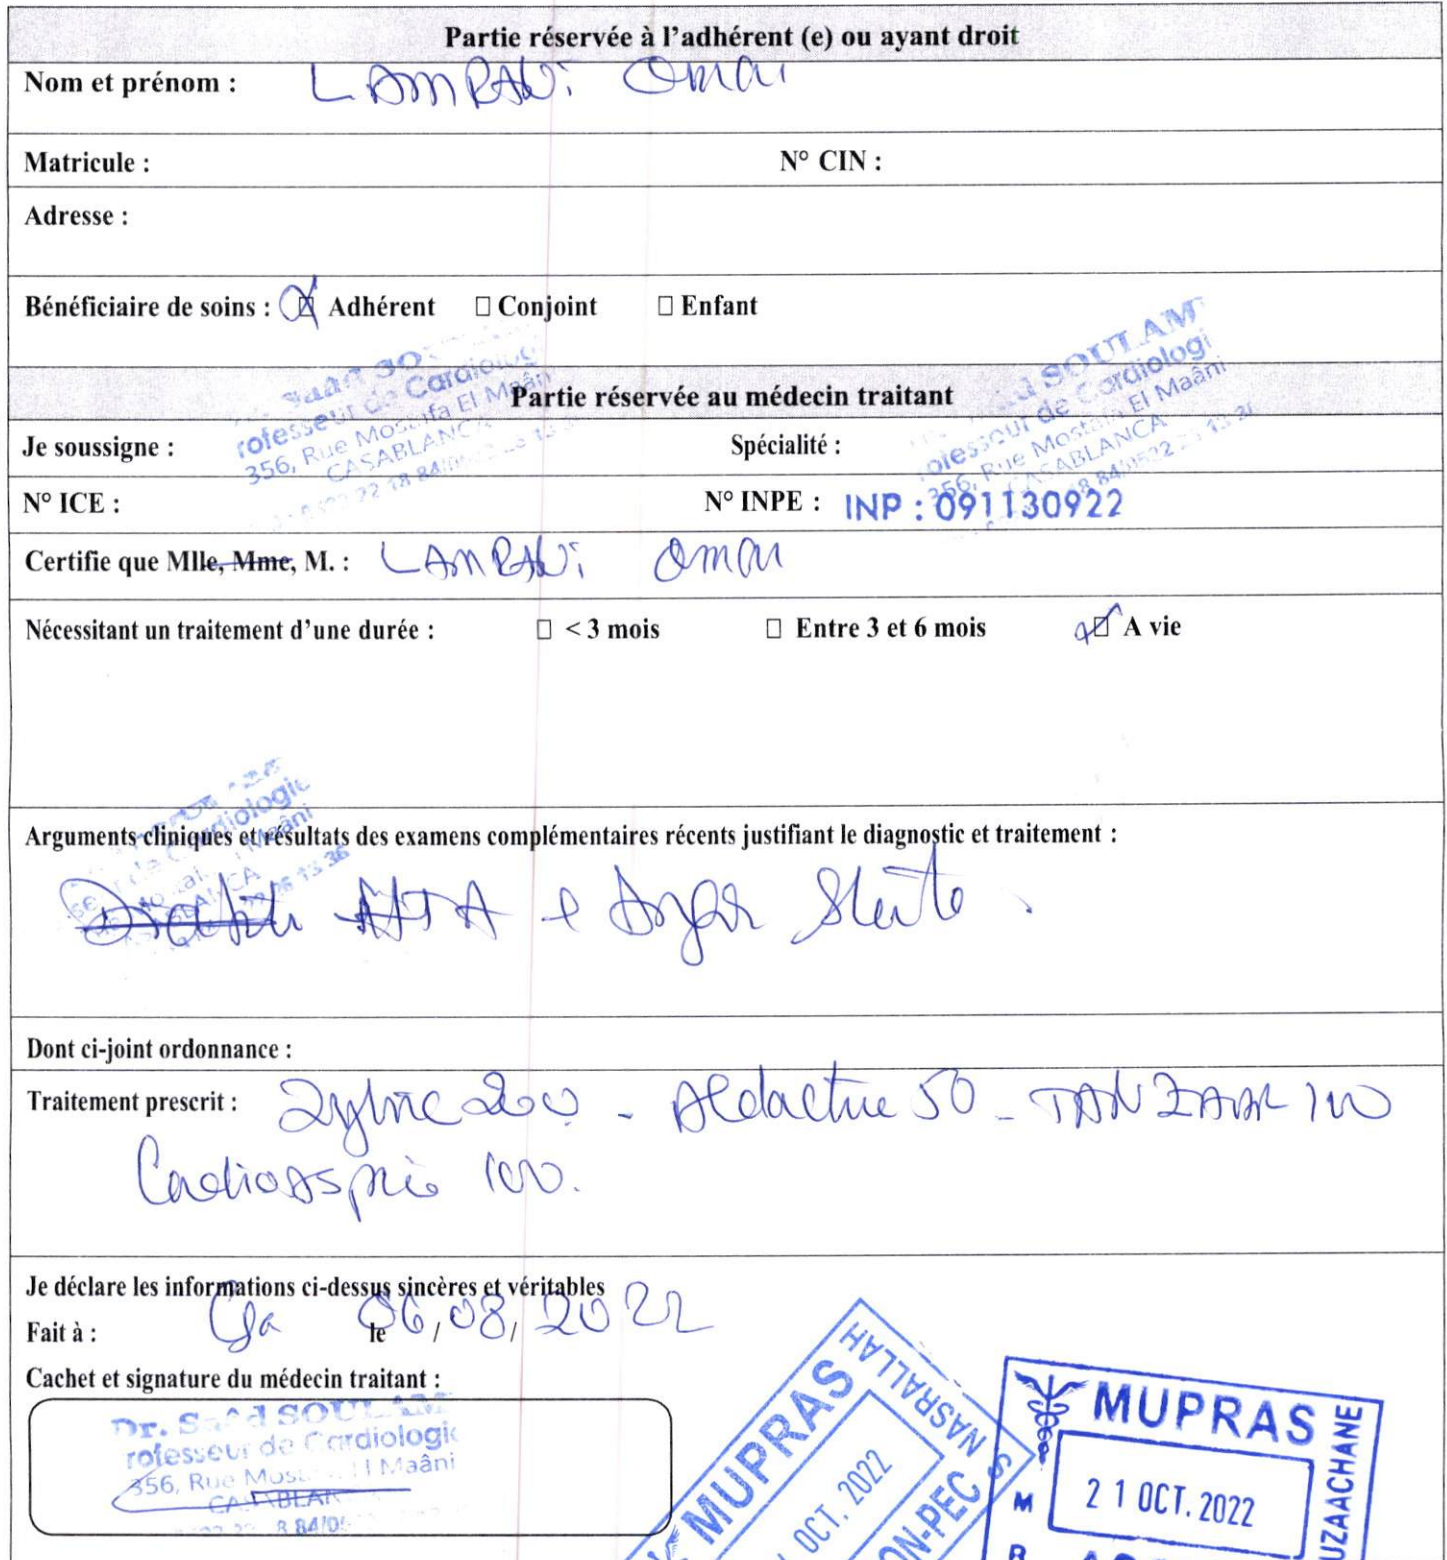 Partie réservée à l'adhérent (e) ou ayant droit
Nom et prénom : LAMRAWi Omar
Matricule : N° CIN :
Adresse :
Bénéficiaire de soins : Adhérent □ Conjoint □ Enfant
Partie réservée au médecin traitant
Je soussigne : Spécialité :
rofesseur de Cardiologi
356, Rue Mostafa El Maâni
CASABLANCA
SOULAM
Cardiologi
Rue Mostafa El Maâni
CASABLANCA
N° ICE : N° INPE : INP : 091130922
Certifie que Mlle, Mme, M. : LAMRAWi Omar
Nécessitant un traitement d'une durée : □ < 3 mois □ Entre 3 et 6 mois A vie
Arguments cliniques et résultats des examens complémentaires récents justifiant le diagnostic et traitement :
HTA
Dont ci-joint ordonnance :
Traitement prescrit : Zyloric 200 - Aldactone 50 - TANZAAR 100
Cardioaspirine 100.
Je déclare les informations ci-dessus sincères et véritables
Fait à : Casa le 06/08/2022
Cachet et signature du médecin traitant :
Dr. Saâd SOULAM
rofesseur de Cardiologi
356, Rue Mostafa El Maâni
CASABLAN
MUPRAS
NASRALLAH
OCT. 2022
ON-PEC
MUPRAS
21 OCT. 2022
UZAACHANE